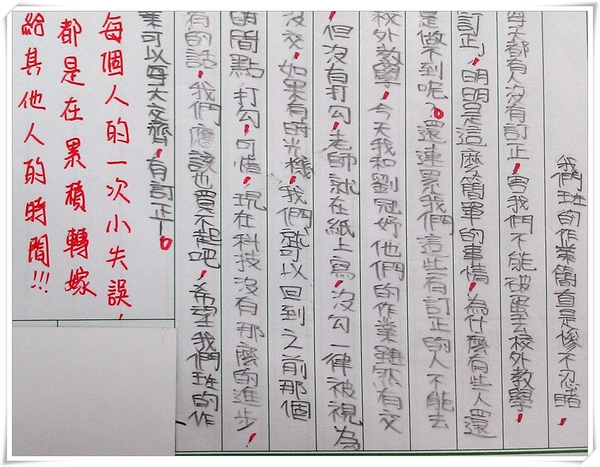 我們班的作業簡直是慘不忍睹,
每天都有人沒有訂正,害我們不能被去校外教學,
訂正,明明是這麼簡單的事情,為什麼有些人還
是做不到呢?還連累我們這些有訂正的人不能去
校外教學,今天我和劉冠妤他們的作業雖然有交
,但沒有打勾,老師就在紙上寫,沒勾一律被視為
沒交,如果有時光機,我們就可以回到之前那個
時間點打勾,可惜,現在科技沒有那麼的進步,
有的話,我們應該也買不起吧,希望我們班的作
業可以每天交齊,有訂正。
每個人的一次小失誤,
都是在累積轉嫁
給其他人的時間!!!